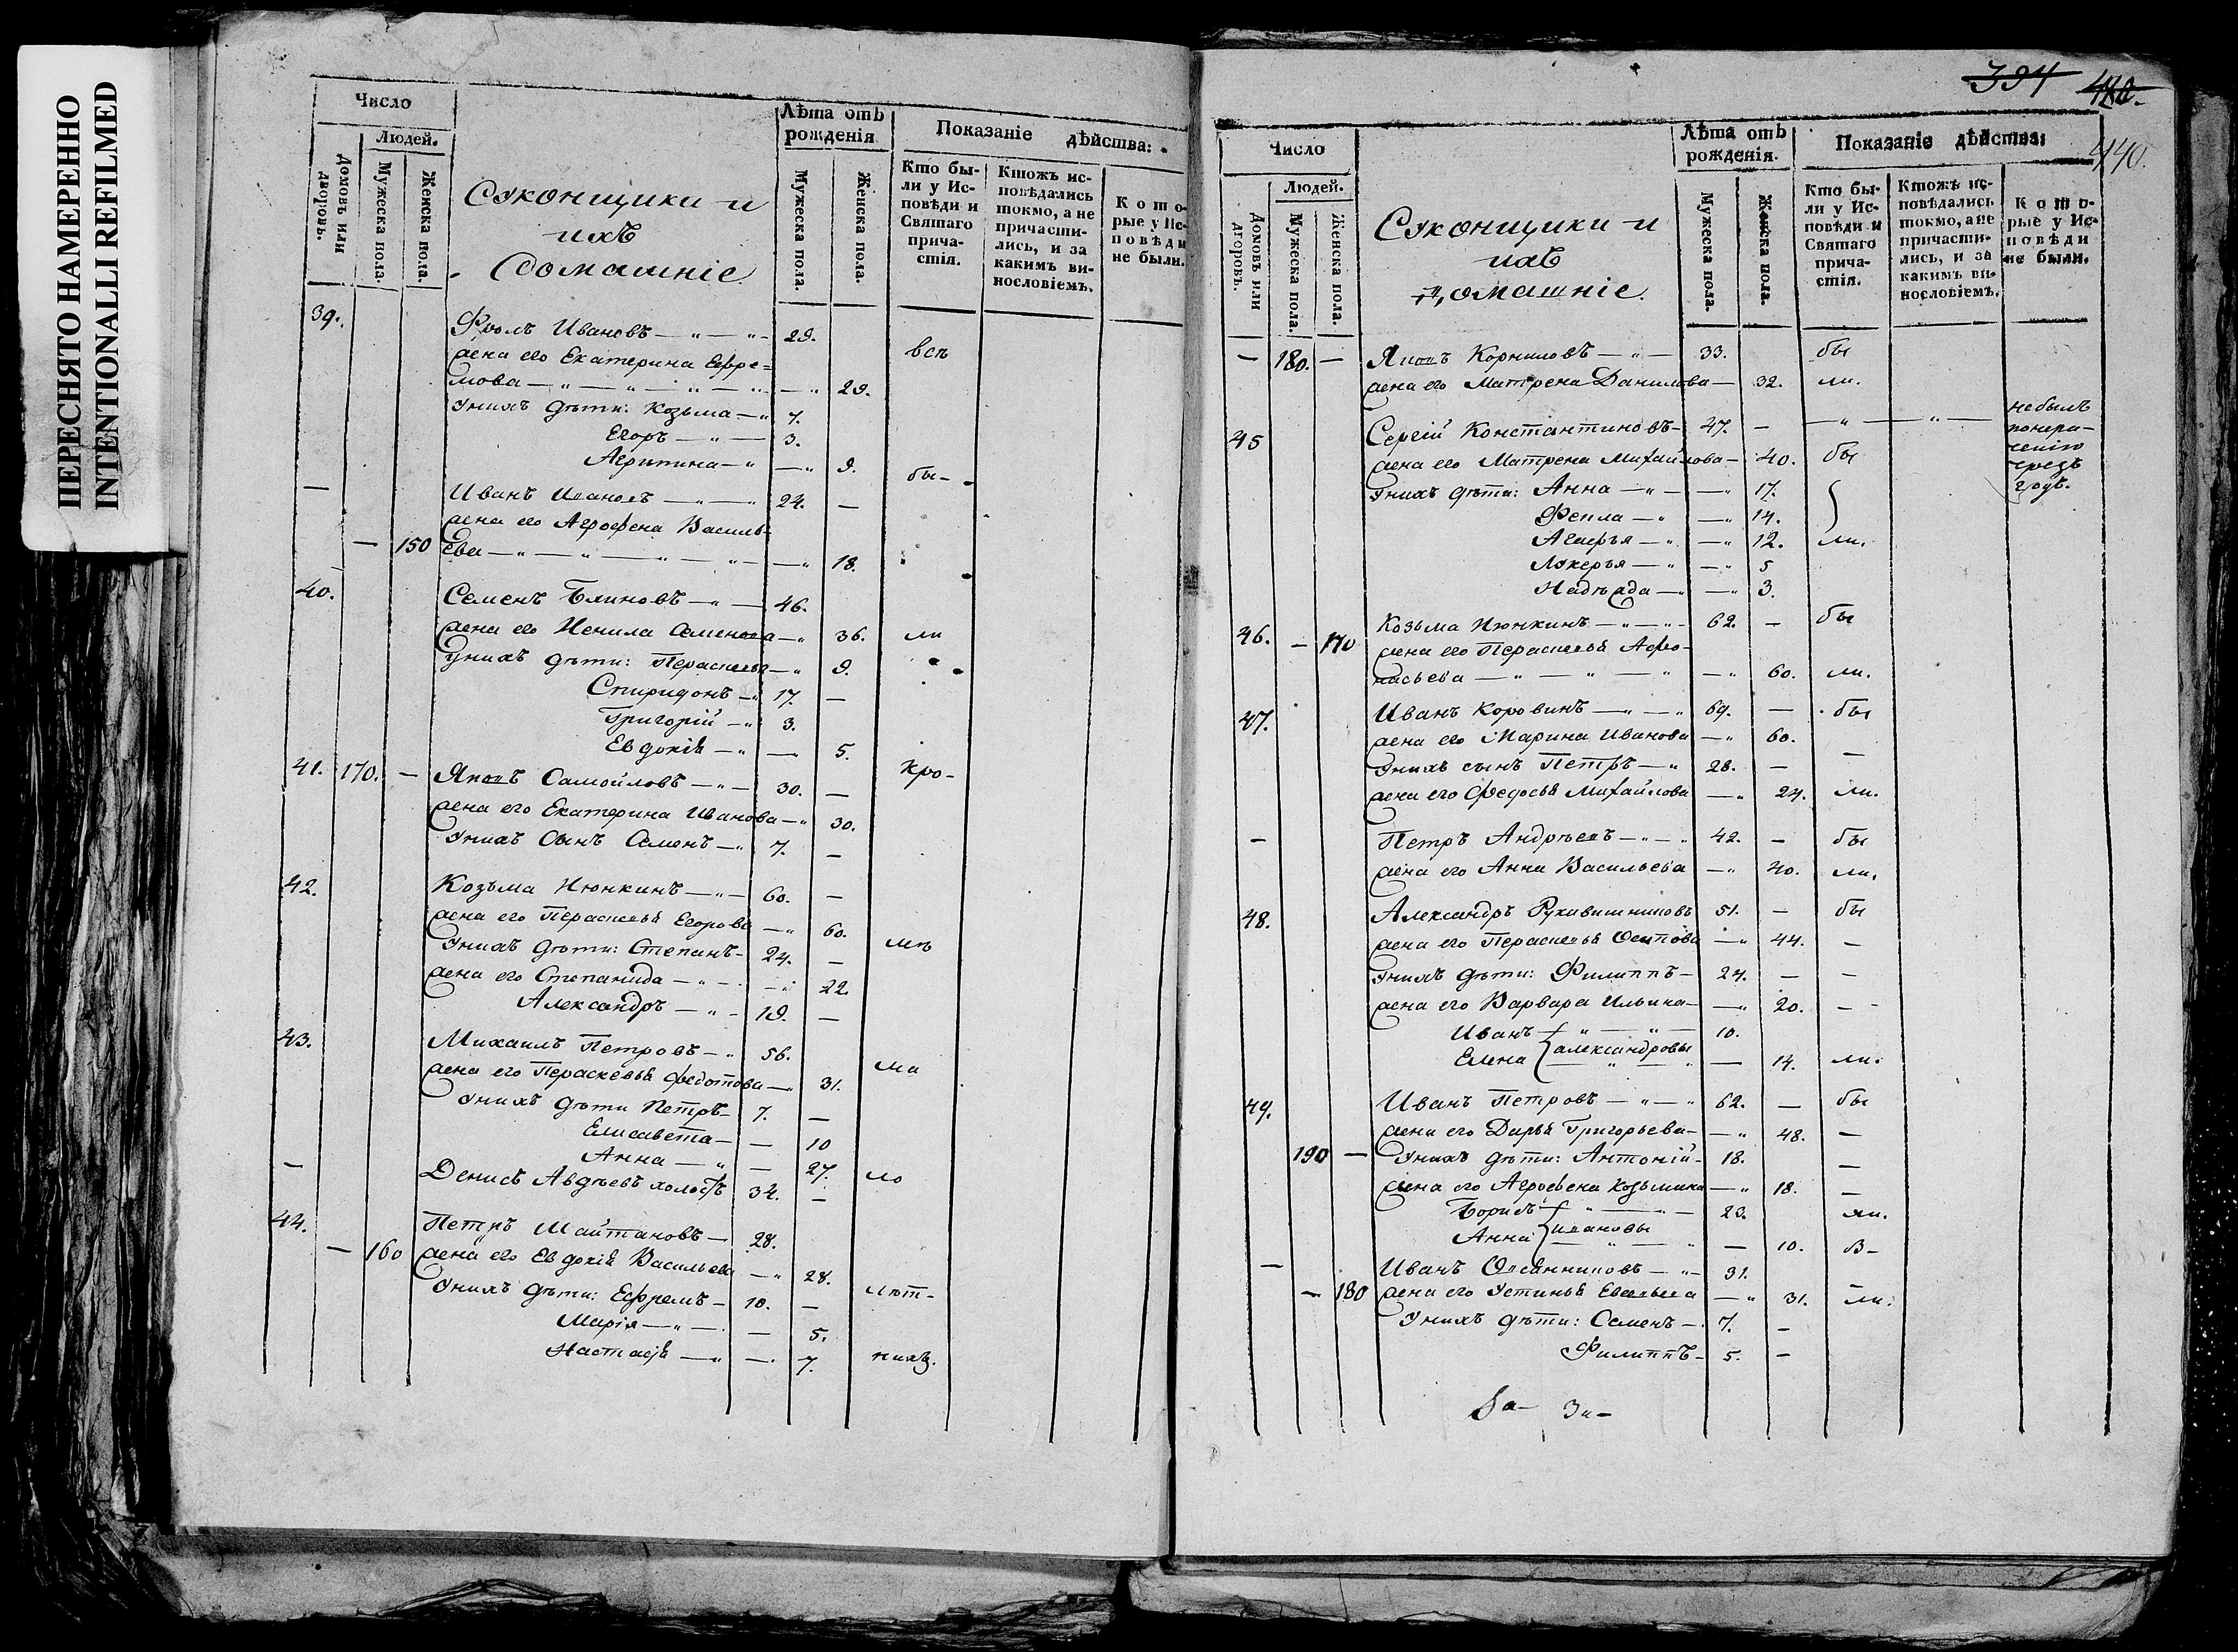 ПЕРЕСНЯТО НАМЕРЕННО
INTENTIONALLI REFILMED
Число
Людей.
Домовъ или дворовъ.
Мужеска пола.
Женска пола.
Суконщики и
ихъ
домашніе.
Лѣта отъ рожденія
Мужеска пола.
Женска пола.
Показаніе дѣйства:
Кто были у Исповѣди и Святаго причастія.
Ктожъ исповѣдались токмо, а не причастились, и за какимъ винословіемъ.
Которые у Исповѣди не были.
39. Фролъ Ивановъ — „ — „ - 29.
жена его Екатерина Ефре= всѣ
мова — „ — „ — „ — „ — „ 29.
у нихъ дѣти: Козьма — „ 7.
Егоръ — „ — 3.
Агрипина — „ — „ 9.
— Иванъ Ивановъ — „ — 24. — бы-
жена его Агрофена Василь-
— 150 ева — „ — „ — „ — „ — „ 18.
40. Семенъ Блиновъ — „ — 46.
жена его Ненила Семенова — „ 36. ли
у нихъ дѣти: Пераскевья — „ 9.
Спиридонъ — „ 17. —
Григорій — „ 3.
Евдокія — „ — 5.
41. 170. — Яковъ Самойловъ — „ — 30. — кро-
жена его Екатерина Иванова — „ 30.
у нихъ сынъ Семенъ — „ 7. —
42. Козьма Нюнкинъ — „ — 60. —
жена его Пераскевья Егорова — „ 60.
у нихъ дѣти: Степанъ - 24. — мѣ
жена его Степанида — „ - — „ 22.
Александръ — „ - 19. —
43. Михаилъ Петровъ — „ 56.
жена его Пераскевья Федотова — „ 31. ма
у нихъ дѣти Петръ - 7. —
Елисавета — — 10
Анна — „ — 27.
— Денисъ Авдѣевъ холостъ 34. — ло
44. Петръ Майтановъ — 28.
— 160 жена его Евдокія Васильева — „ 28.
у нихъ дѣти: Ефремъ — 10. — лѣт-
Марія — „ — — 5.
Настасія — „ — 7. нихъ.
394 420. 440.
Число
Людей.
Домовъ или дворовъ.
Мужеска пола.
Женска пола.
Суконщики и
ихъ
домашніе.
Лѣта отъ рожденія.
Мужеска пола.
Женска пола.
Показаніе дѣйства:
Кто были у Исповѣди и Святаго причастія.
Ктожъ исповѣдались токмо, а не причастились, и за какимъ винословіемъ.
Которые у Исповѣди не были.
— 180. — Яковъ Корниловъ — „ — 33. бы
жена его Матрена Данилова — 32. ли.
45 Сергій Константиновъ - 47. — — „ — „ — небылъ
жена его Матрена Михайлова — 40. бы
у нихъ дѣти: Анна — „ — — „ 17. годъ.
Фекла — „ — „ 14.
Агафья — „ — „ 12. ли.
Лукерья — „ — „ 5
Надѣжда — „ — „ 3.
46. — 170 Козьма Нюнкинъ — „ — „ - 62. — бы
жена его Пераскевья Афо-
насьева — „ — „ — „ — „ 60. ли.
47. Иванъ Коровинъ — „ — „ 69. — бы
жена его Марина Иванова — „ 60.
у нихъ сынъ Петръ — „ 28. — —
жена его Федосья Михайлова — „ 24. ли.
— Петръ Андрѣевъ — „ — „ 42. — бы
жена его Анна Васильева — „ 40. ли.
48. Александръ Рукавишниковъ 51. — бы
жена его Пераскевья Осипова — „ 44. —
у нихъ дѣти: Филиппъ — 24. — —
жена его Варвара Ильина — — „ 20. —
Иванъ — „ — „ — 10.
Елена александровы — 14. ли.
49. Иванъ Петровъ — „ — „ 62. — бы
жена его Дарья Григорьева — — „ 48. —
190 — у нихъ дѣти: Антоній - 18. —
жена его Агрофена Козьмина — „ 18. —
Борисъ — „ — „ — 23. ли.
Анна Ивановы — 10. б-
— Иванъ Овсянниковъ — „ - 31.
— 180 жена его Устинья — „ 31. ли.
у нихъ дѣти: Семенъ — 7. —
Филиппъ - 5. —